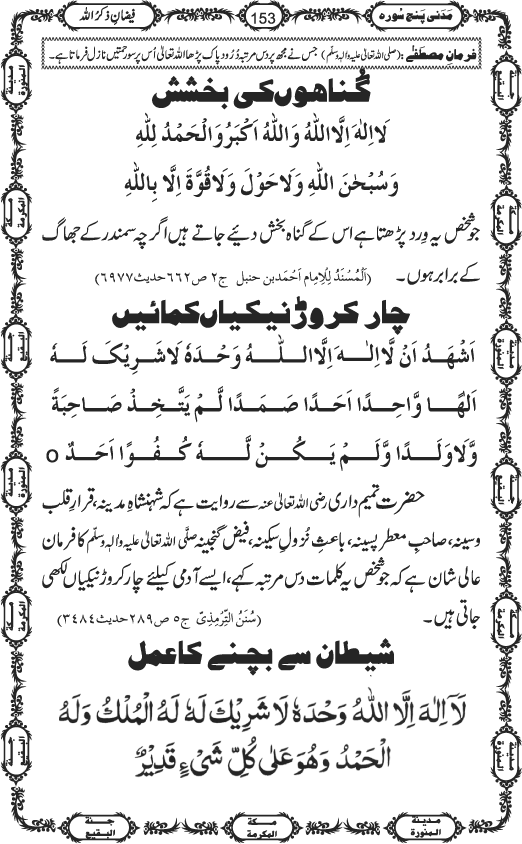 مَدَنی پنج سُورہ 153 فیضانِ ذِکرُ اللہ
فرمانِ مصطفٰے : (صلی اللہ تعالیٰ علیہ واٰلہٖ وسلّم) جس نے مجھ پر دس مرتبہ دُرُود پاک پڑھا اللہ تعالیٰ اُس پر سو رحمتیں نازل فرماتا ہے۔
گُناھوں کی بخشش
لَا اِلٰهَ اِلَّا اللهُ وَاللهُ اَكْبَرُ وَالْحَمْدُ لِلّٰهِ
وَسُبْحٰنَ اللهِ وَلَاحَوْلَ وَلَاقُوَّةَ اِلَّا بِاللهِ
جو شخص یہ وِرد پڑھتا ہے اس کے گناہ بخش دئیے جاتے ہیں اگرچہ سمندر کے جھاگ
کے برابر ہوں۔ (اَلْمُسْنَدُ لِلاِمام اَحْمَد بن حنبل ج۲ ص۶۶۲ حدیث۶۹۷۷)
چار کروڑ نیکیاں کمائیں
اَشْهَدُ اَنْ لَّا اِلٰهَ اِلَّا اللهُ وَحْدَهٗ لَا شَرِيْكَ لَهٗ
اِلٰهًا وَّاحِدًا اَحَدًا صَمَدًا لَّمْ يَتَّخِذْ صَاحِبَةً
وَّلَا وَلَدًا وَّلَمْ يَكُنْ لَّهٗ كُفُوًا اَحَدٌ o
حضرت تمیم داری رضی اللہ تعالیٰ عنہ سے روایت ہے کہ شہنشاہِ مدینہ، قرارِ قلب
وسینہ، صاحبِ معطر پسینہ، باعثِ نُزولِ سکینہ، فیض گنجینہ صلَّی اللہ تعالیٰ علیہ واٰلہٖ وسلَّم کا فرمان
عالی شان ہے کہ جو شخص یہ کلمات دس مرتبہ کہے، ایسے آدمی کیلئے چار کروڑ نیکیاں لکھی
جاتی ہیں۔ (سُنَنُ التِّرمِذِیّ ج۵ ص۲۸۹ حدیث۳۴۸۴)
شیطان سے بچنے کا عمل
لَآ اِلٰهَ اِلَّا اللهُ وَحْدَهٗ لَا شَرِيْكَ لَهٗ لَهُ الْمُلْكُ وَلَهُ
الْحَمْدُ وَهُوَ عَلٰى كُلِّ شَیْءٍ قَدِيْرٌ
مدینۃ المنورۃ
مکۃ المکرمۃ
جنۃ البقیع
مدینۃ المنورۃ
مکۃ المکرمۃ
جنۃ البقیع
جنۃ البقیع
مکۃ المکرمۃ
مدینۃ المنورۃ
جنۃ البقیع
مکۃ المکرمۃ
مدینۃ المنورۃ
مدینۃ المنورۃ
مکۃ المکرمۃ
جنۃ البقیع